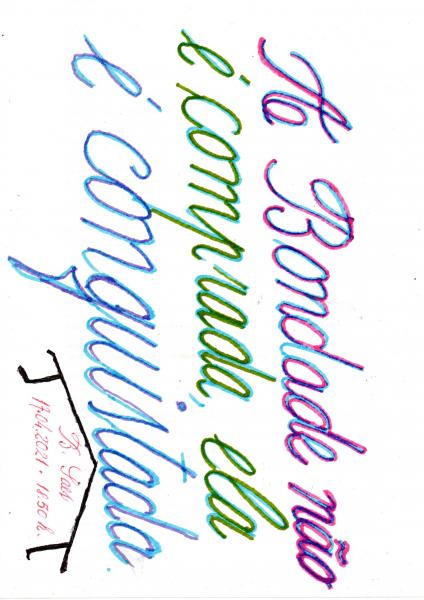 A Bondade não
é comprada, ela
é conquistada.
17.04.2021. 18:50 h.